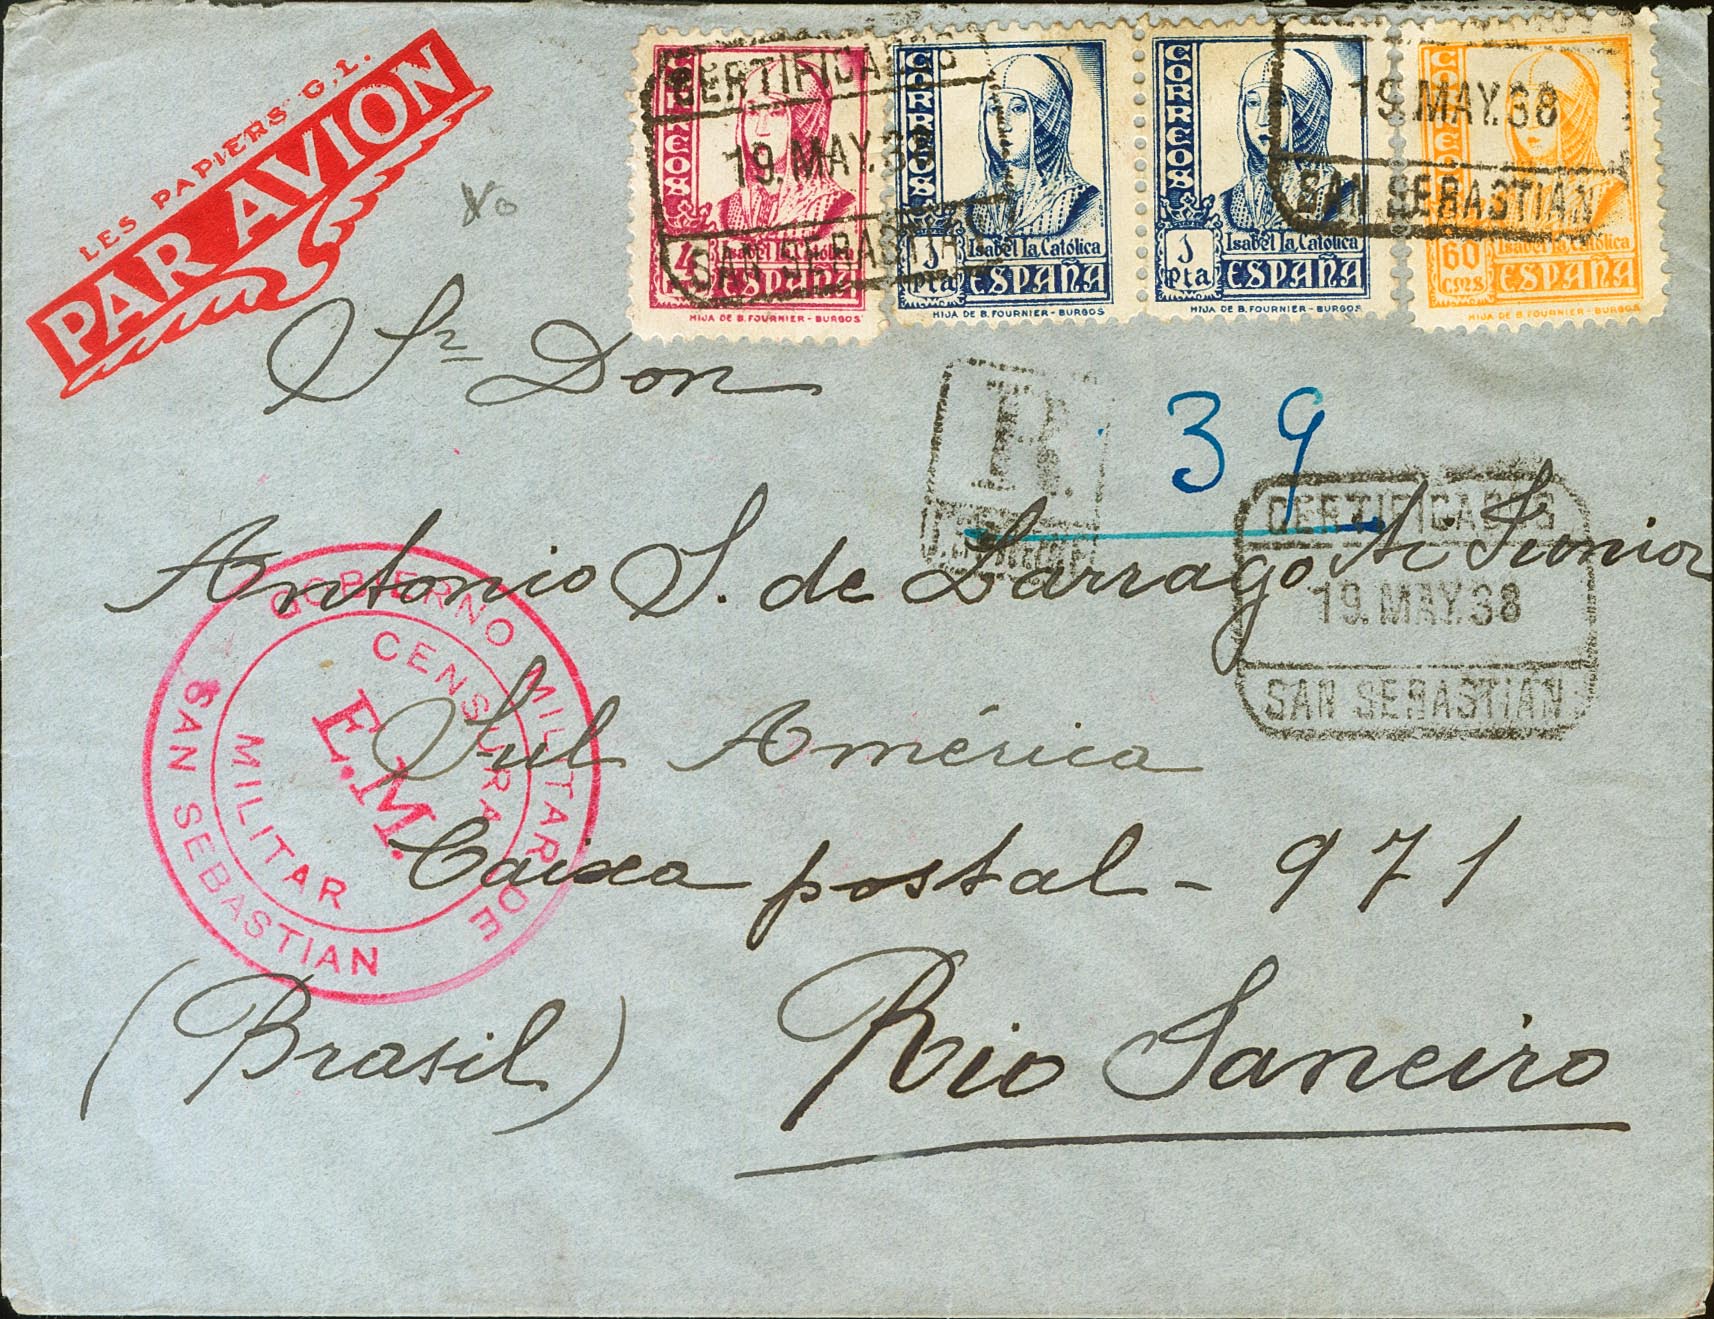 LES PAPIERS G.L.
PAR AVION
CORREOS
4
Isabel la Católica
ESPAÑA
HIJA DE B. FOURNIER - BURGOS
CORREOS
1 Pta
Isabel la Católica
ESPAÑA
HIJA DE B. FOURNIER - BURGOS
CORREOS
1 Pta
Isabel la Católica
ESPAÑA
HIJA DE B. FOURNIER - BURGOS
CORREOS
60 cms
Isabel la Católica
ESPAÑA
HIJA DE B. FOURNIER - BURGOS
CERTIFICADOS
19. MAY. 38
SAN SEBASTIAN
19. MAY. 38
SAN SEBASTIAN
Sr Don
R.
39
Antonio S. de Larrago Junior
CERTIFICADOS
19. MAY. 38
SAN SEBASTIAN
GOBIERNO MILITAR DE SAN SEBASTIAN
CENSURA MILITAR
E.M.
Sul América
Caixa postal - 971
(Brasil) Rio Janeiro